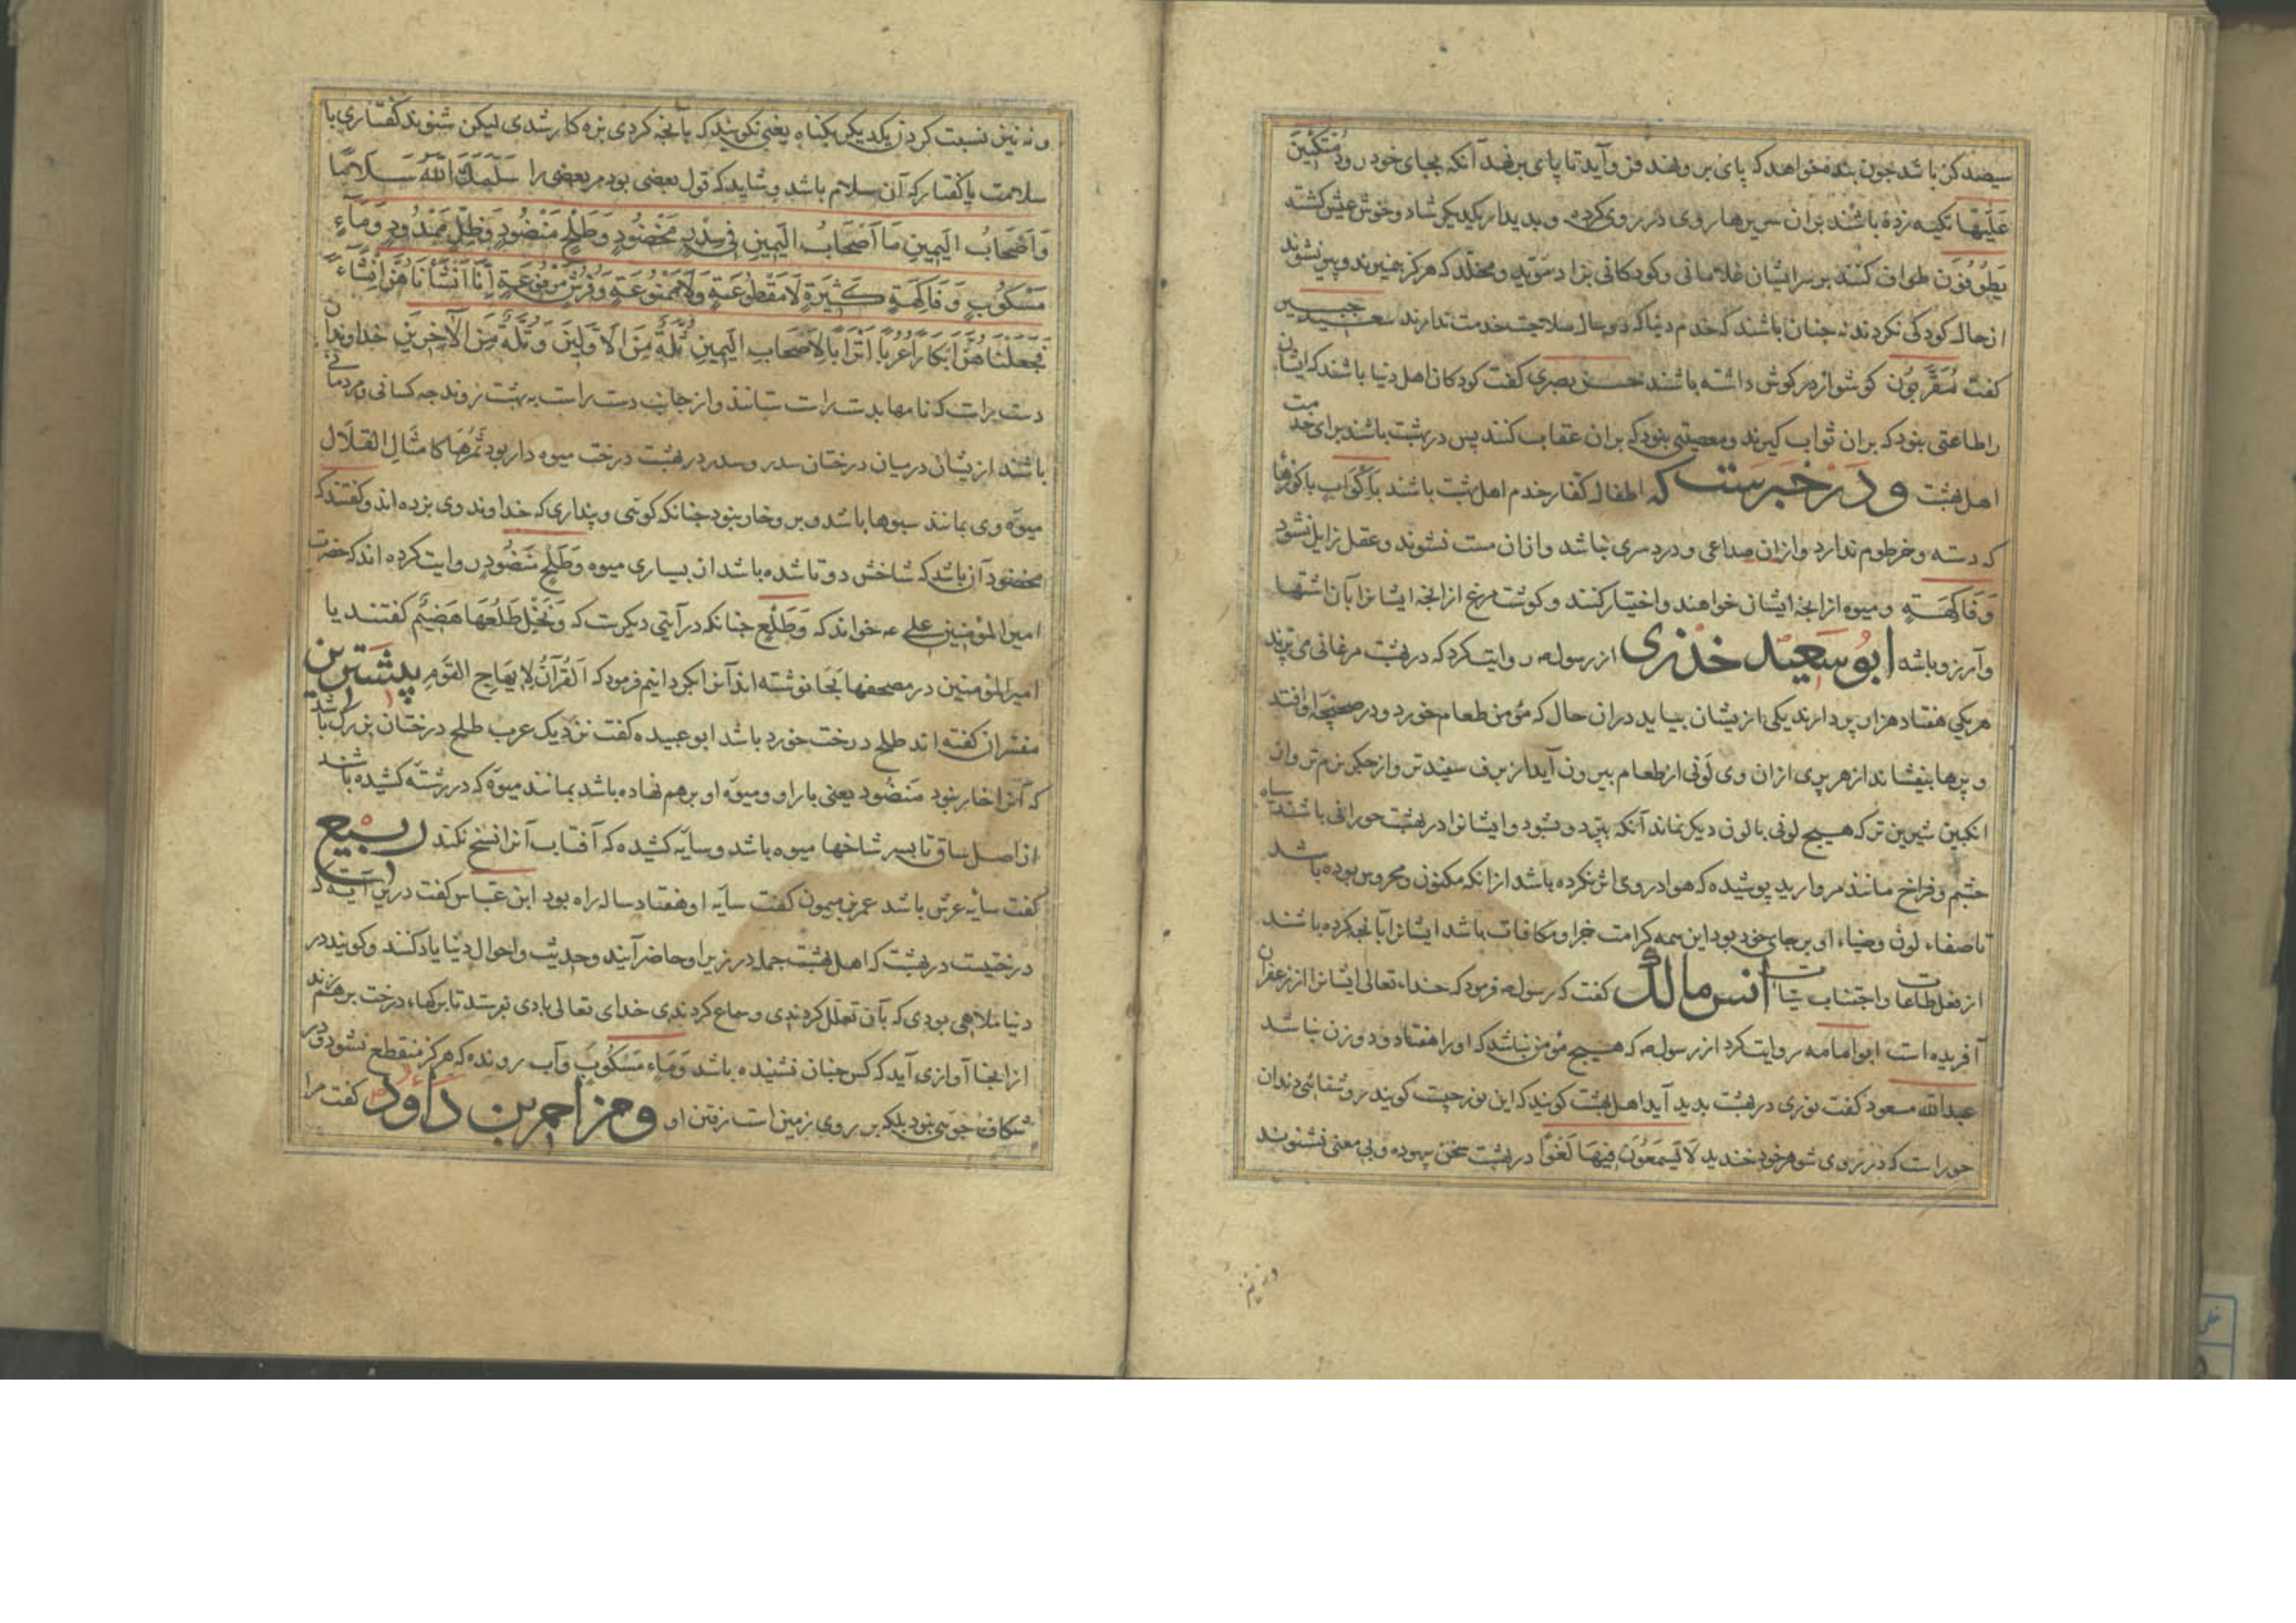 سیصد کز باشد چون بنده خواهد که پای بر و نهد فرو آید تا پای بر نهد آنکه بجای خود رود مُتَّكِئِينَ
عَلَيْهَا تکیه زده باشند بران سریرها روی در روی کرده و بدیدار یکدیکر شاد و خوش عیش کشته
يَطُوفُونَ طواف کنند بر سر ایشان غلامانی و کودکانی نزاد مؤبد و مخلد که هرکز نمیرند و پیر نشوند
از حال کودکی نکردند نه چنان باشند که خدم دنیا که دو سال صلاحیت خدمت ندارند سعید جبیر
کفت مُقَرَّطُون کوشوار در کوش داشته باشند حسن بصری کفت کودکان اهل دنیا باشند که ایشان
را طاعتی نبود که بران ثواب کیرند و معصیتی نبود که بران عقاب کنند پس در بهشت باشند برای خدمت
اهل بهشت و در خبرست که اطفال کفار خدم اهل بهشت باشند بِأَكْوَابٍ با کوزها
که دسته و خرطوم ندارد و ازان صداعی و درد سری نباشد و ازان مست نشوند و عقل زایل نشود
وَفَاكِهَةٍ و میوه ازانچه ایشان خواهند و اختیار کنند و کوشت مرغ ازانچه ایشانرا بآن اشتها
و آرزو باشه ابو سعید خدری از رسول ص روایت کرد که در بهشت مرغانی می پرند
هر یکی هفتاد هزار پر دارند یکی ازیشان بیاید دران حال که مؤمن طعام خورد و در صحفهٔ او افتد
و پرها بیفشاند از هر پری ازان وی لونی از طعام بیرون آید از برف سفیدتر و از جکر نرم تر و از
انکبین شیرین تر که هیچ لونی با لون دیکر نماند آنکه بپرد و بشود و ایشانرا در بهشت حورانی باشند سیاه
چشم و فراخ مانند مروارید پوشیده که هوا در وی اثر نکرده باشد ازانکه مکنون و محروس بوده باشد
تا صفاء لون و ضیاء او بر جای خود بود این همه کرامت جزا و مکافات باشد ایشانرا بآنچه کرده باشند
از فعل طاعات و اجتناب سیئات انس مالک کفت که رسول ص فرمود که خداء تعالی ایشانرا از زعفران
آفریده است ابو امامه روایت کرد از رسول ص که هیچ مؤمن نباشد که او را هفتاد و دو زن نباشد
عبدالله مسعود کفت نوری در بهشت بدید آید اهل بهشت کویند که این نور چیست کویند روشنائی دندان
حوراست که در روی شوهر خود خندید لَا يَسْمَعُونَ فِيهَا لَغْوًا در بهشت سخن بیهوده و بی معنی نشنوند
و نه نیز
و نه نیز نسبت کردن یکدیکر بکناه یعنی نکویند که بآنچه کردی بزه کار شدی لیکن شنوند کفتاری با
سلامت یا کفتار که آن سلام باشد و شاید که قول بعضی بود مر بعضی را سَلَّمَكَ اللَّهُ سَلَامًا
وَأَصْحَابُ الْيَمِينِ مَا أَصْحَابُ الْيَمِينِ فِي سِدْرٍ مَخْضُودٍ وَطَلْحٍ مَنْضُودٍ وَظِلٍّ مَمْدُودٍ وَمَاءٍ
مَسْكُوبٍ وَفَاكِهَةٍ كَثِيرَةٍ لَا مَقْطُوعَةٍ وَلَا مَمْنُوعَةٍ وَفُرُشٍ مَرْفُوعَةٍ إِنَّا أَنْشَأْنَاهُنَّ إِنْشَاءً
فَجَعَلْنَاهُنَّ أَبْكَارًا عُرُبًا أَتْرَابًا لِأَصْحَابِ الْيَمِينِ ثُلَّةٌ مِنَ الْأَوَّلِينَ وَثُلَّةٌ مِنَ الْآخِرِينَ خداوندان
دست راست که نامها بدست راست ستانند و از جانب دست راست به بهشت روند چه کسانی و مردمانی
باشند ازیشان در میان درختان سدر و سدر در بهشت درخت میوه دار بود ثَمَرُهَا كَأَمْثَالِ الْقِلَالِ
میوه وی بمانند سبوها باشد و بر و خار نبود چنانکه کوئی و پنداری که خداوند وی بزده اند و کفتند که
مخضود آن باشد که شاخش دوتا شده باشد از بسیاری میوه وَطَلْحٍ مَنْضُودٍ روایت کرده اند که حضرت
امیر المؤمنین علی ع خواند که وَطَلْعٍ چنانکه در آیتی دیکرست که وَنَخْلٍ طَلْعُهَا هَضِيمٌ کفتند یا
امیر المؤمنین در مصحفها بحا نوشته اند آنرا بکردانیم فرمود که اَلْقُرْآنُ لَا يُهَاجُ الْيَوْمَ پیشترین
مفسران کفته اند طلح درخت خورد باشد ابو عبیده کفت نزدیک عرب طلح درختان بزرک باشد
که آنرا خار نبود مَنْضُود یعنی بار او و میوه او بر هم نهاده باشد بمانند میوه که در رشته کشیده باشند
از اصل ساق تا بسر شاخها میوه باشد و سایه کشیده که آفتاب آنرا نسخ نکند ربیع انس
کفت سایه عرش باشد عمر بن میمون کفت سایه او هفتاد ساله راه بود ابن عباس کفت درین آیت که
درختیست در بهشت که اهل بهشت جمله در زیر او حاضر آیند و حدیث و احوال دنیا یاد کنند و کویند در
دنیا ملاهی بودی که بآن تعلل کردندی و سماع کردندی خدای تعالی بادی بفرستد تا برکهاء درخت بر هم زند
ازانجا آوازی آید که کس چنان نشنیده باشد وَمَاءٍ مَسْكُوبٍ و آب رونده که هرکز منقطع نشود و در
شکاف جوی نبود بلکه بر روی زمین است رفتن او و حمزا حمر بن داود کفت مرا